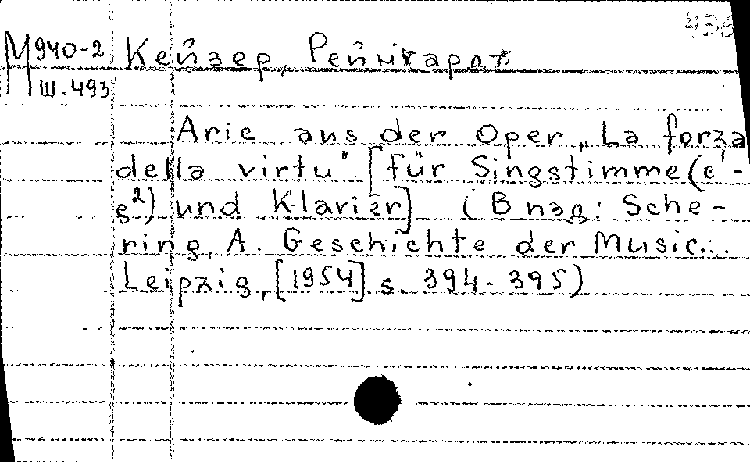 438
М940-2 Кейзер, Рейнкардт
Ш.493
Arie aus der Oper „La forza
della virtu" [für Singstimme (e¹-
g²) und Klavier] (В изд: Sche-
ring, A. Geschichte der Music...
Leipzig, [1954] s. 394-395)